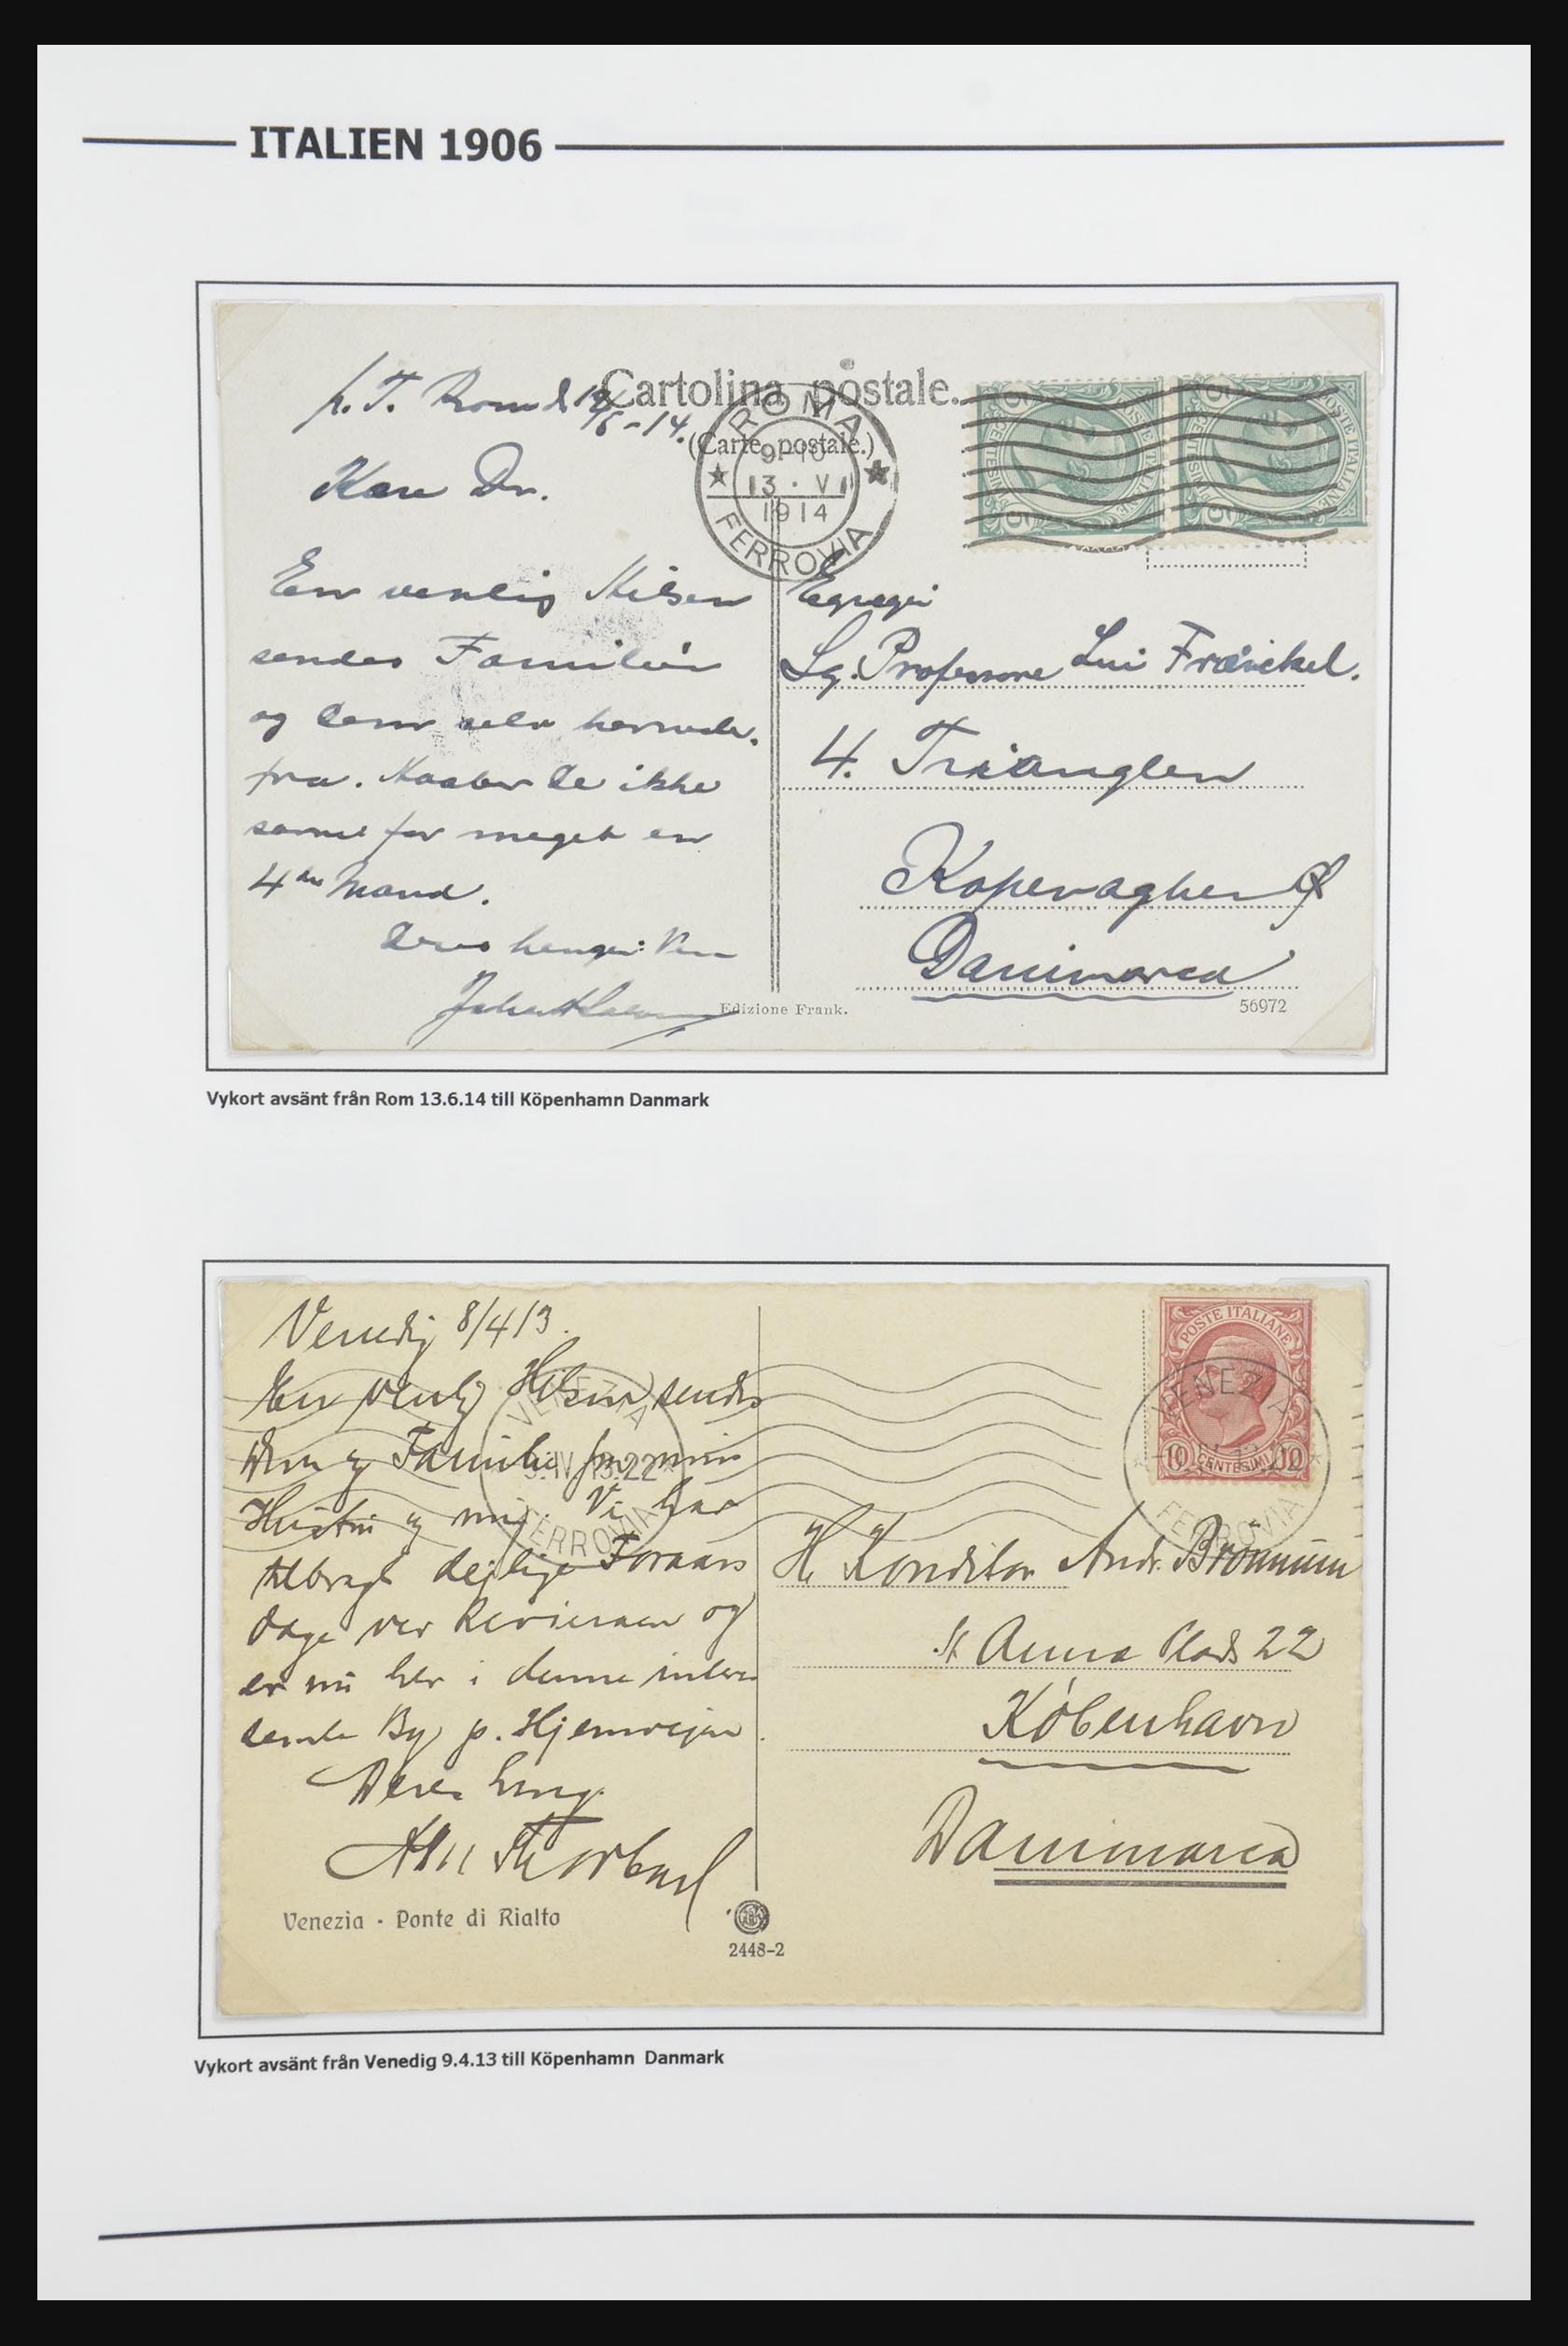 ITALIEN 1906
Cartolina postale.
(Carte postale.)
p. T. Rom d. 12/6-14.
ROMA
9-10
13 · VI
1914
FERROVIA
POSTE ITALIANE
CENTESIMI
5
5
POSTE ITALIANE
CENTESIMI
5
5
Kære Dr.
En venlig Hilsen
sendes Familien
og Dem selv hernede.
fra. Haaber De ikke
savne for meget en
4de Mand.
Deres hengi: Ven
Egregi
Sg. Professore Fraenckel.
4. Trianglen
Kopenaghen Ø
Danimarca
Edizione Frank.
56972
Vykort avsänt från Rom 13.6.14 till Köpenhamn Danmark
Venedig 8/4/13.
En venlig Hilsen sendes
Dem og Familie fra min
Hustru og mig. Vi har
tilbragt dejlige Foraars
dage ver Revieraen og
er nu her i denne interes
sante By p. Hjemvejen.
Deres heng.
VENEZIA
9.IV 13.22
FERROVIA
POSTE ITALIANE
10 CENTESIMI 10
VENEZIA
FERROVIA
H. Konditor Andr. Brönnum
St Anna Plads 22
København
Danimarca
Venezia - Ponte di Rialto
2448-2
Vykort avsänt från Venedig 9.4.13 till Köpenhamn Danmark